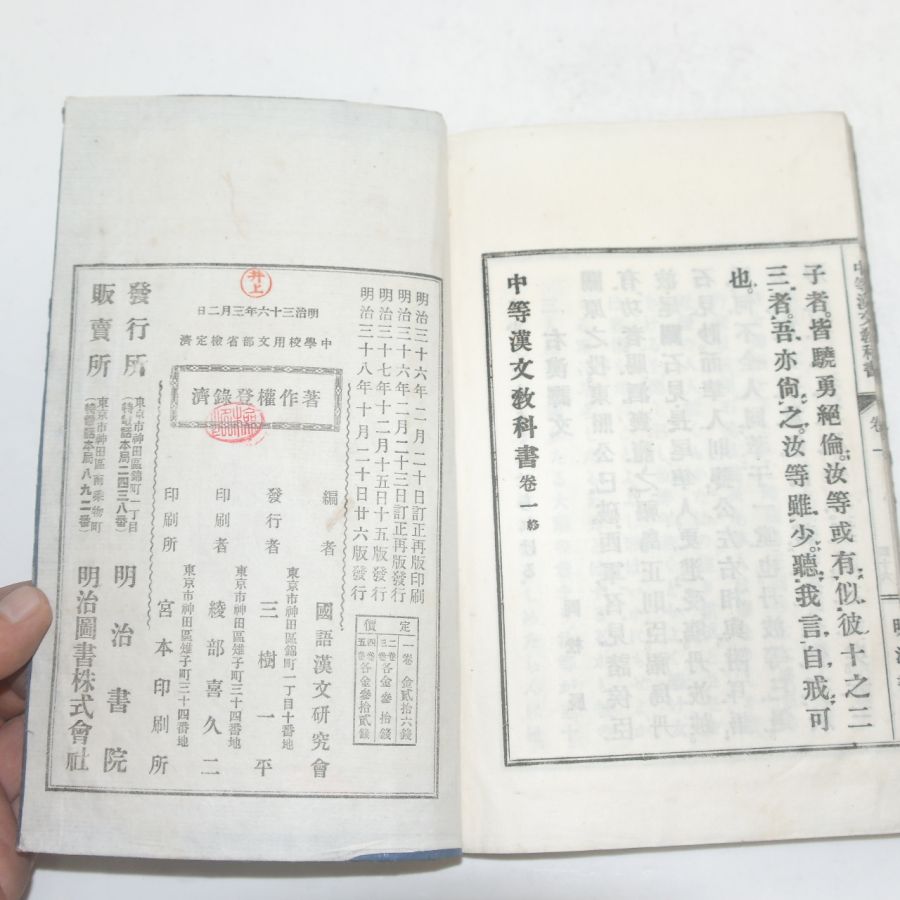 子者。皆驍勇絕倫。汝等或有似彼十之三
三者。吾亦尙之。汝等雖少。聽我言自戒可
也。
中等漢文敎科書卷一終
中等漢文敎科書 卷一
明治三十六年二月二十日訂正再版印刷
明治三十六年二月二十三日訂正再版發行
明治三十七年十二月十五日十五版發行
明治三十八年十月二十日廿六版發行
定價
一卷 金貳拾六錢
二卷 三卷 各金參拾錢
四卷 五卷 各金參拾貳錢
井上
明治三十六年三月二日
中學校用文部省檢定濟
著作權登錄濟
編者 國語漢文研究會
東京市神田區錦町一丁目十番地
發行者 三樹一平
東京市神田區雉子町三十四番地
印刷者 綾部喜久二
東京市神田區雉子町三十四番地
印刷所 宮本印刷所
發行所 東京市神田區錦町一丁目 (特電話本局二四三八番) 明治書院
販賣所 東京市神田區南乘物町 (特電話本局八九二番) 明治圖書株式會社